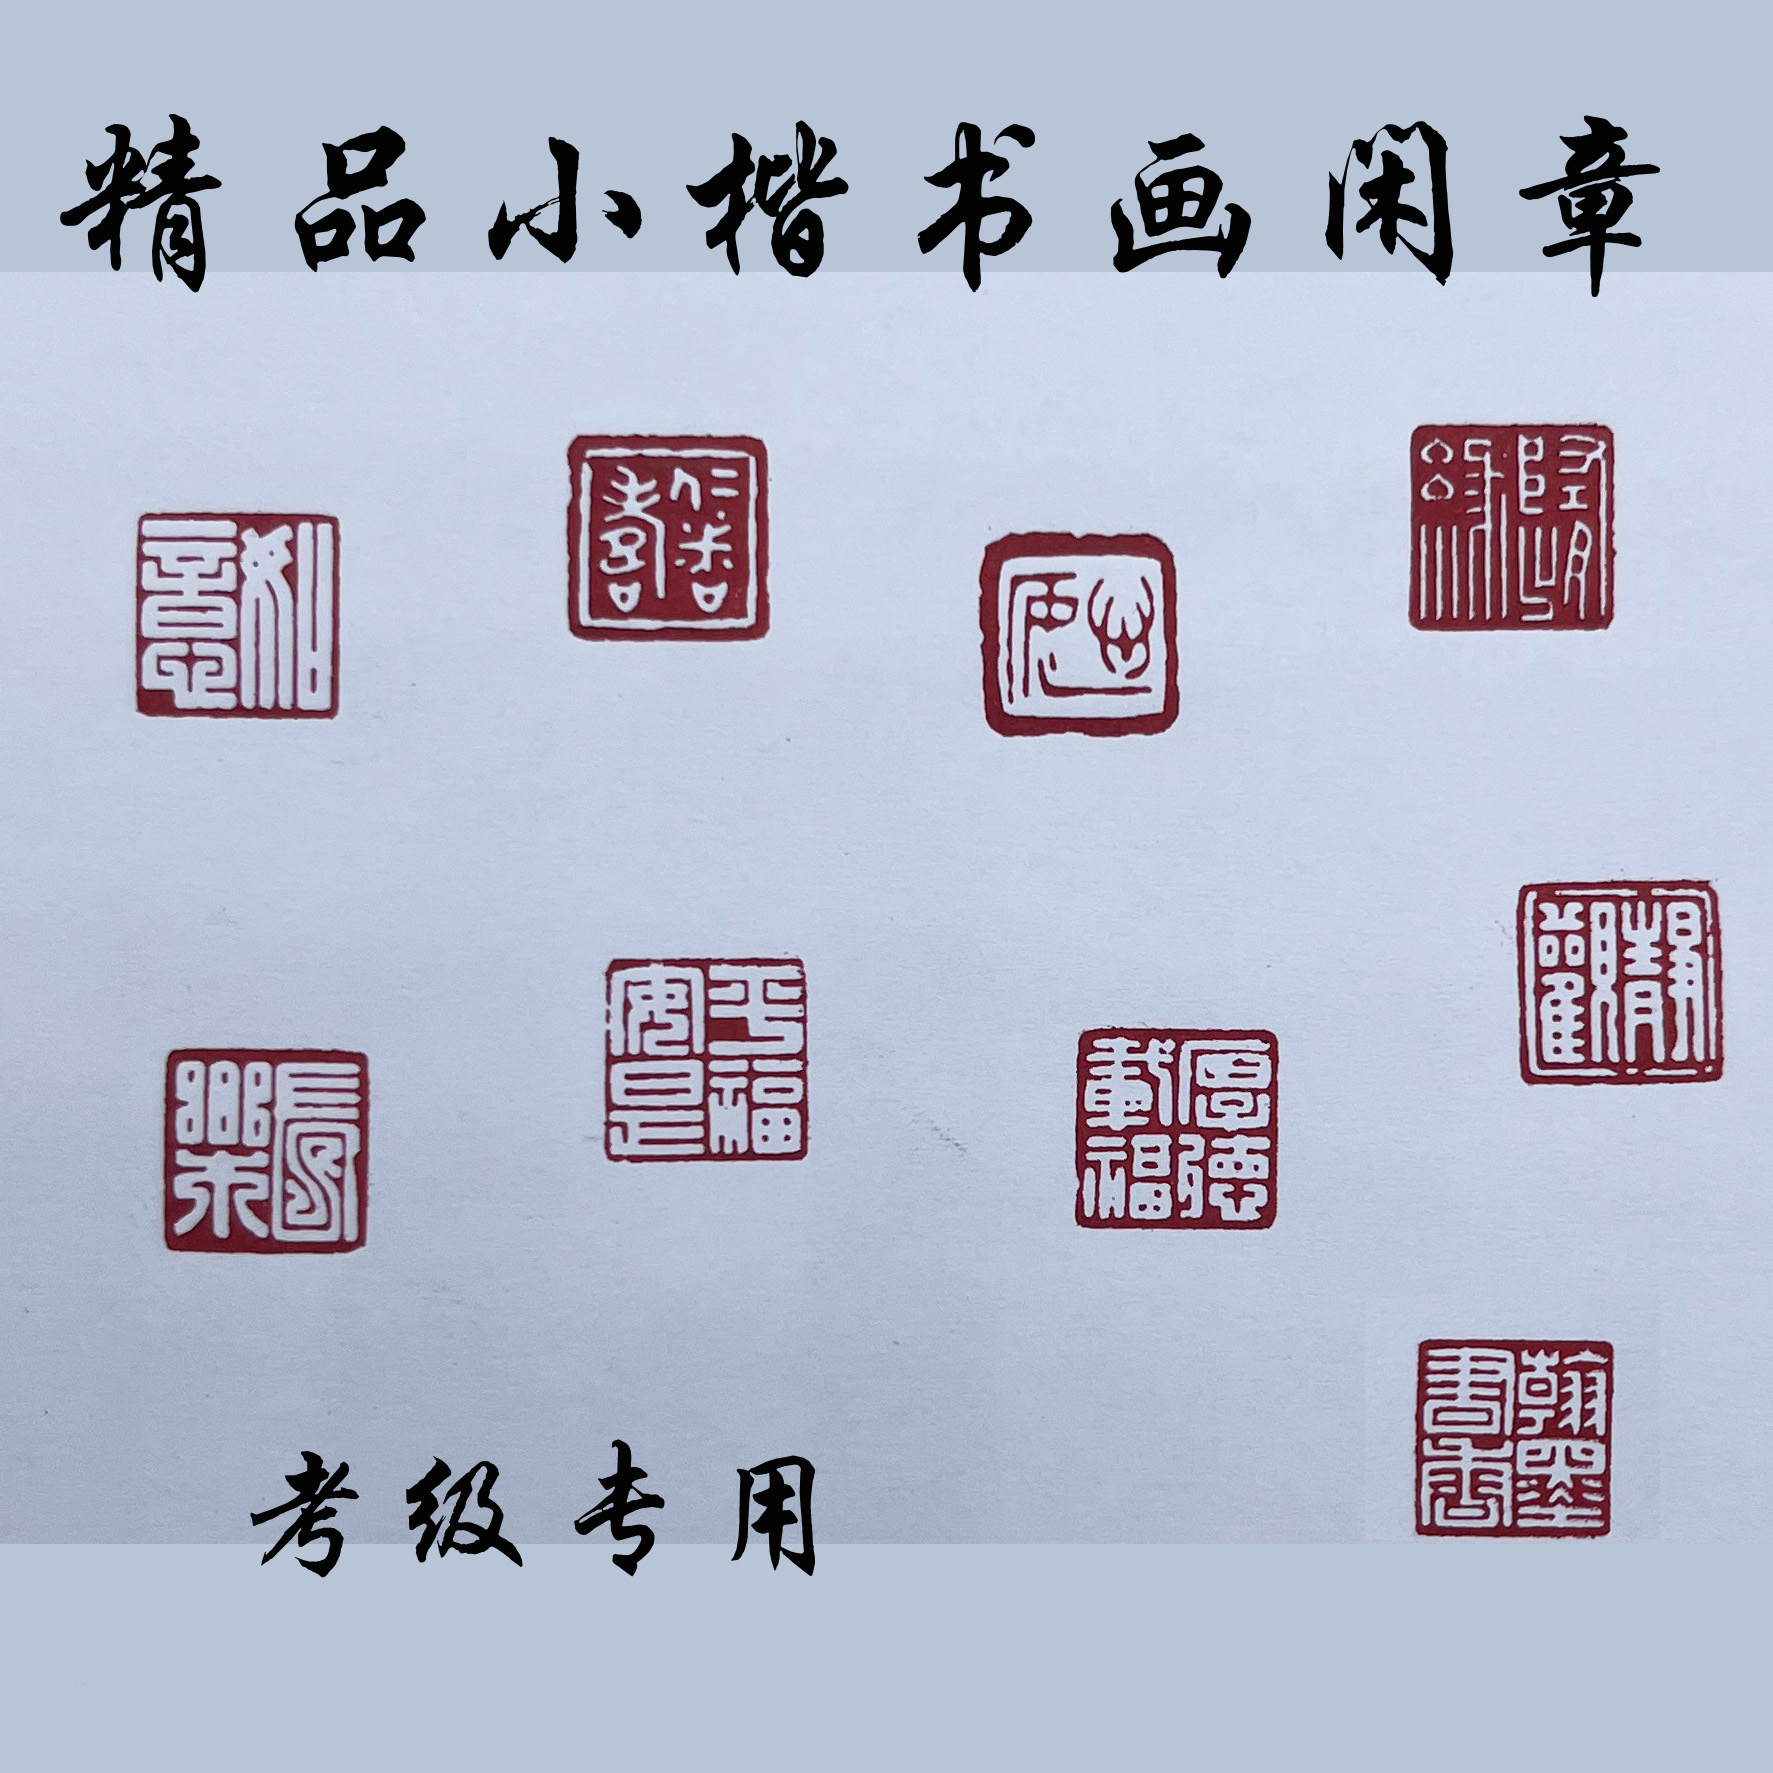 精品小楷书画闲章
仁者壽
隨緣
平安是福
長樂
厚德載福
翰墨書香
考级专用